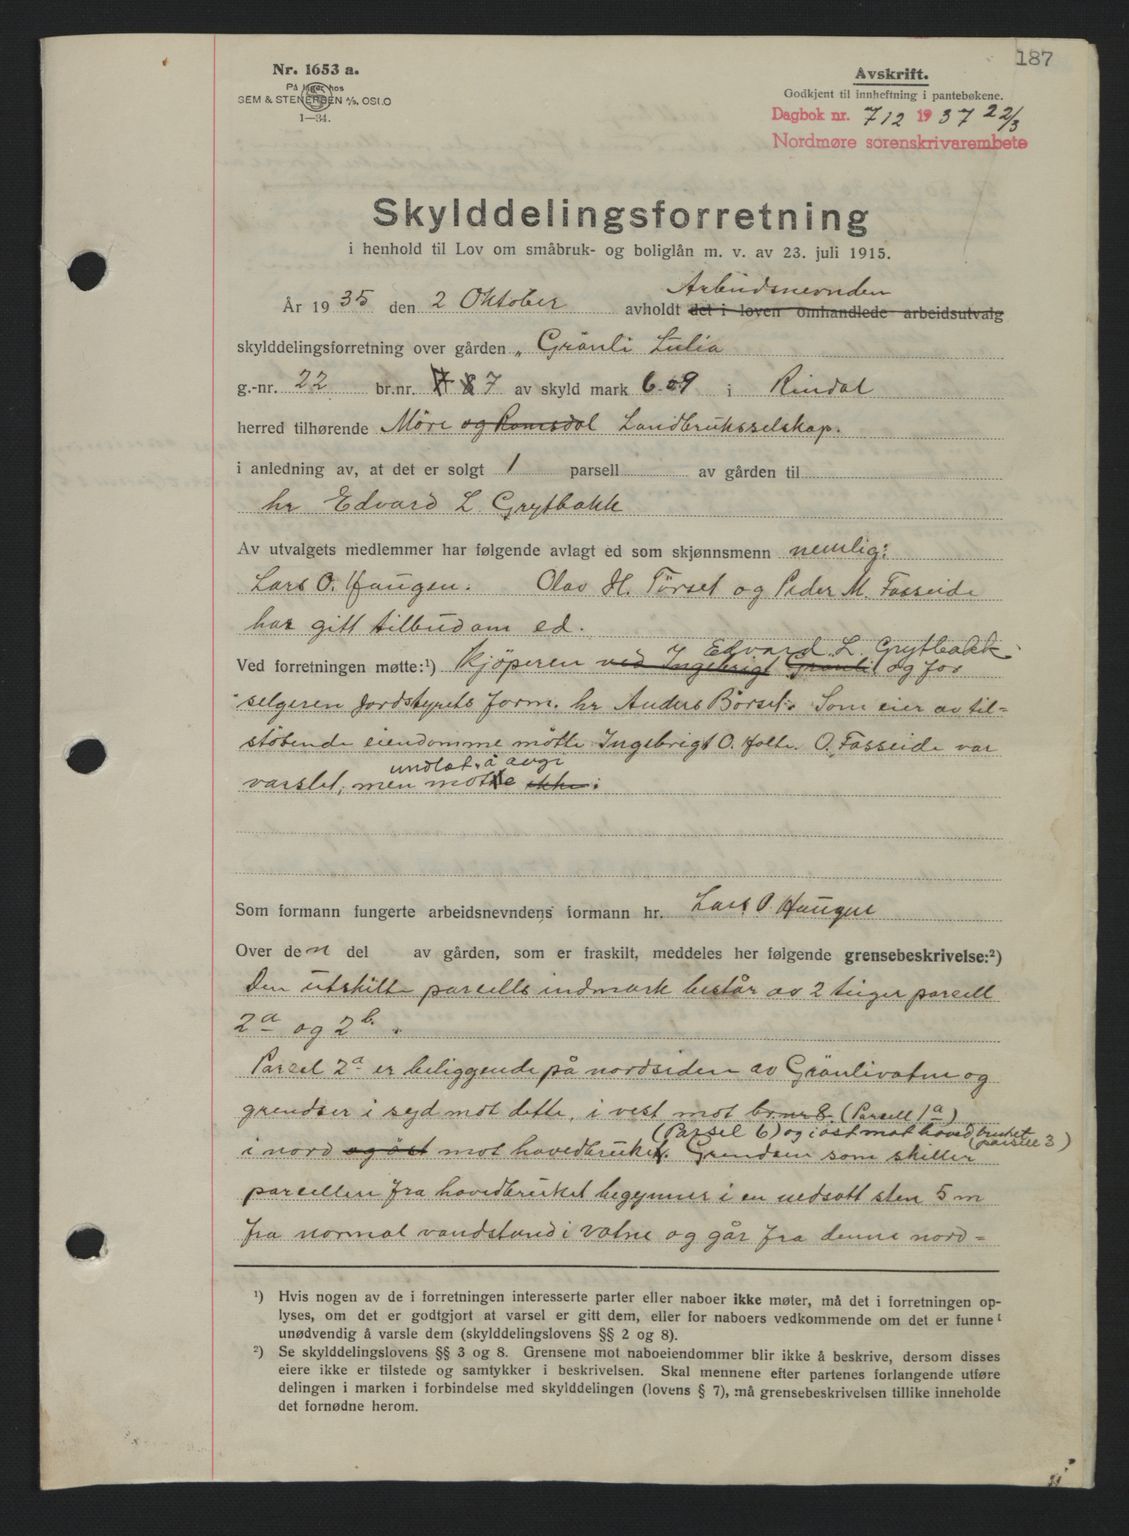 187
Nr. 1653 a.
På lager hos
SEM & STENERSEN A/S, OSLO
1—34.
Avskrift.
Godkjent til innheftning i pantebøkene.
Dagbok nr. 712 1937 22/3
Nordmøre sorenskrivarembete
Skylddelingsforretning
i henhold til Lov om småbruk- og boliglån m. v. av 23. juli 1915.
Arbeidsnevnden
År 1935 den 2 Oktober avholdt det i loven omhandlede arbeidsutvalg
skylddelingsforretning over gården „ Grönli Lilia
g.-nr. 22 br.nr. 7 8 7 av skyld mark 6.09 i Rindal
herred tilhørende Möre og Romsdal Landbruksselskap.
i anledning av, at det er solgt 1 parsell av gården til
hr Edvard L Grytbakk
Av utvalgets medlemmer har følgende avlagt ed som skjønnsmenn nemlig:
Lars O. Haugen. Olav H. Törset og Peder M. Fasseide
har gitt tilbud om ed.
Edvard L. Grytbakk
Ved forretningen møtte:¹) Kjöperen ved Ingebrigt Grönli og for
selgeren Jordstyrets form. hr Anders Börset. Som eier av til=
stötende eiendomme mötte Ingebrigt O. Holte. O. Fasseide var
undlot å avgi
varslet, men møtte ikke.
Som formann fungerte arbeidsnevndens formann hr. Lars O. Haugen
Over den del av gården, som er fraskilt, meddeles her følgende grensebeskrivelse:²)
Den utskilte parsells indmark består av 2 teiger parsell
2a og 2b.
Parsel 2a er beliggende på nordsiden av Grönlivatne og
grendser i syd mot dette, i vest mot br.nr 8 (Parsell 1a)
(Parsel 6) og i öst mot hovedbruket parsel 3)
i nord og öst mot hovedbruket. Grendsen som skiller
parsellen fra hovedbruket begynner i en nedsatt sten 5 m
fra normal vandstand i vatne og går fra denne nord=
¹) Hvis nogen av de i forretningen interesserte parter eller naboer ikke møter, må det i forretningen op-
lyses, om det er godtgjort at varsel er gitt dem, eller for naboers vedkommende om det er funnet
unødvendig å varsle dem (skylddelingslovens §§ 2 og 8).
²) Se skylddelingslovens §§ 3 og 8. Grensene mot naboeiendommer blir ikke å beskrive, dersom disses
eiere ikke er tilstede og samtykker i beskrivelsen. Skal mennene efter partenes forlangende utføre
delingen i marken i forbindelse med skylddelingen (lovens § 7), må grensebeskrivelsen tillike inneholde
det fornødne herom.